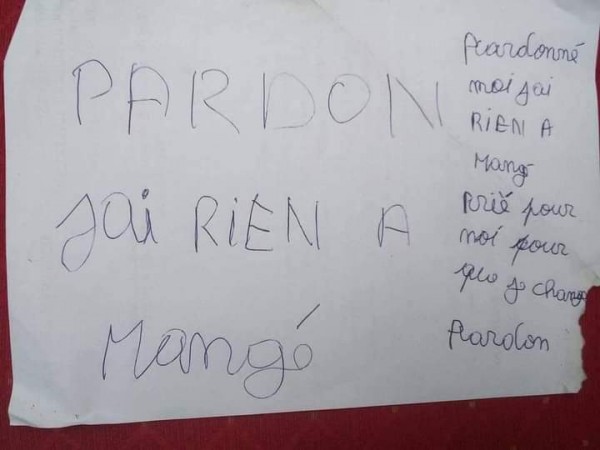 PARDON
jai RIEN A
Mangé
Pardonné
moi jai
RIEN A
Mangé
Prié pour
moi pour
que je change
Pardon